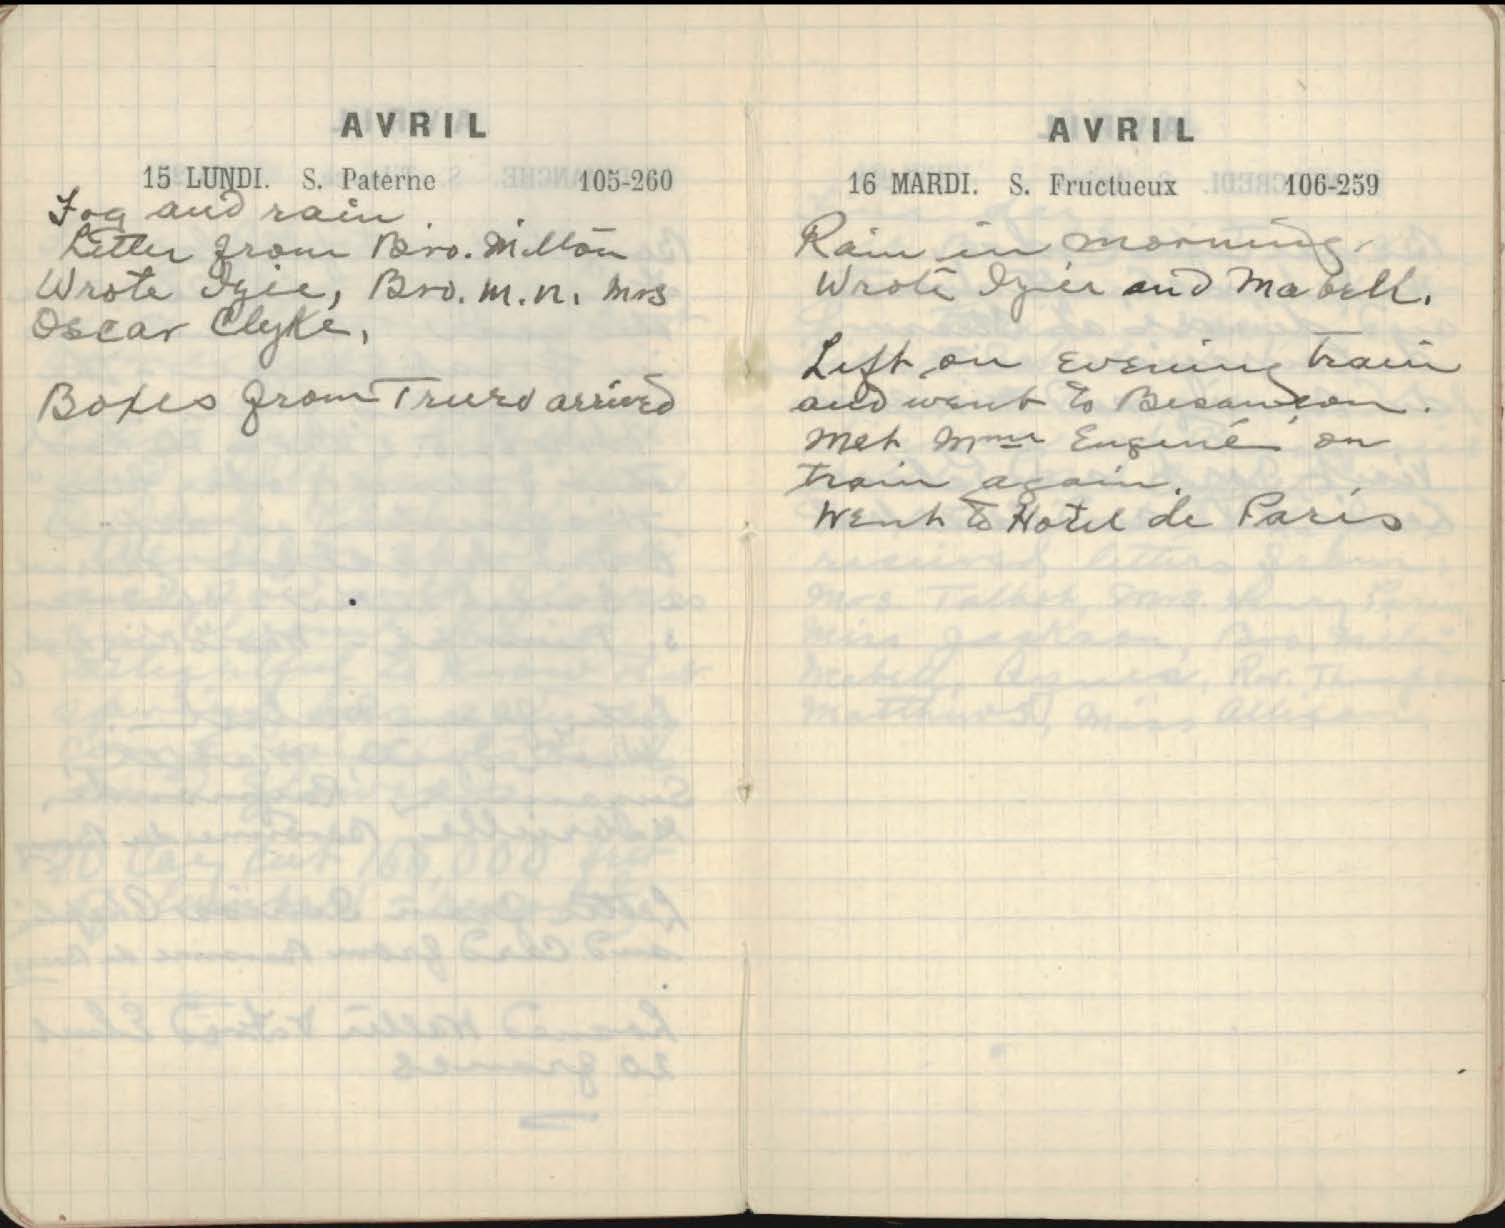 AVRIL
15 LUNDI. S. Paterne 105-260
Fog and rain.
Letter from Bro. Milton
Wrote Izie, Bro. M.N. Mrs
Oscar Clyke,
Boxes from Truro arrived
AVRIL
16 MARDI. S. Fructueux 106-259
Rain in morning.
Wrote Izie and Mabell.
Left on evening train
and went to Besançon.
Met Mme Eugené on
train again.
Went to Hotel de Paris